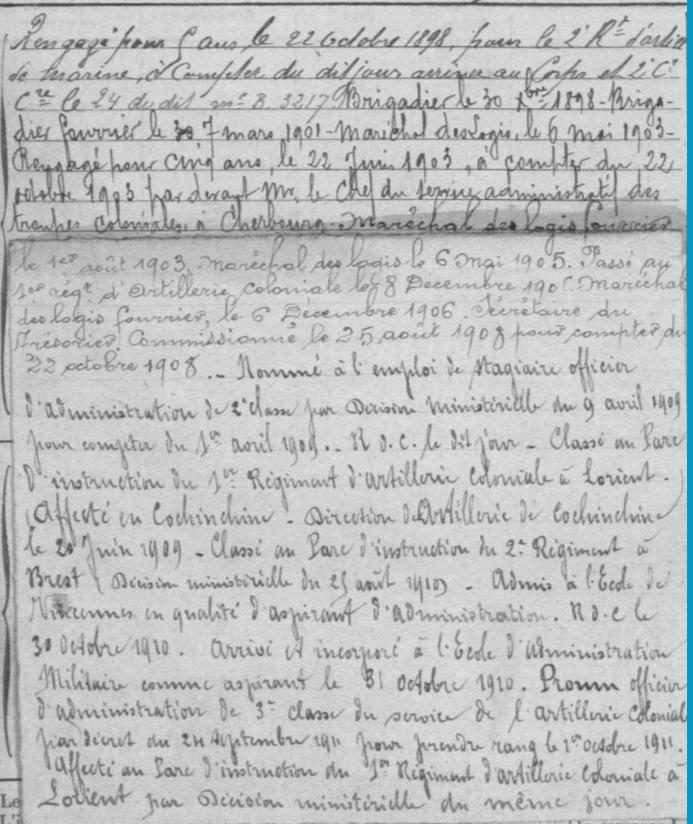 Rengagé pour 5 ans, le 22 Octobre 1898, pour le 2e Rt d'artie
de marine, à compter du dit jour arrivé au Corps et 2e Cie
Cie le 24 du dit mle B. 3217 Brigadier le 30 Xbre 1898 - Briga-
dier fourrier le 30 7 mars 1901 - Maréchal des Logis, le 6 mai 1903 -
Rengagé pour cinq ans, le 22 Juin 1903, à compter du 22
octobre 1903 par devant Mr. le Chef du service administratif des
troupes coloniales, à Cherbourg. Maréchal des logis fourrier
le 1er août 1903. Maréchal des logis le 6 Mai 1905. Passé au
1er régt d'Artillerie coloniale le 8 Décembre Maréchal
des logis fourrier, le 6 Décembre 1906. Secrétaire du
Trésorier. Commissionné le 25 août 1908 pour compter du
22 octobre 1908. - Nommé à l'emploi de stagiaire officier
d'administration de 2e classe par Décision Ministérielle du 9 avril 1909
pour compter du 1er avril 1909. - R.d.C. le dit jour - Classé au Parc
d'instruction du 1er Régiment d'artillerie Coloniale à Lorient.
(Affecté en Cochinchine - Direction d'Artillerie de Cochinchine
le 20 Juin 1909 - Classé au Parc d'instruction du 2e Régiment à
Brest (Décision ministérielle du 25 août - Admis à l'Ecole de
Vincennes en qualité d'aspirant d'administration. R.d.C le
30 Octobre 1910. Arrivé et incorporé à l'Ecole d'administration
Militaire comme aspirant le 31 Octobre 1910. Promu officier
d'administration de 3e classe du service de l'artillerie Coloniale
par décret du 24 Septembre 1911 pour prendre rang le 1er Octobre 1911.
Affecté au Parc d'instruction du 1er Régiment d'artillerie Coloniale à
Lorient par Décision ministérielle du même jour.
Le